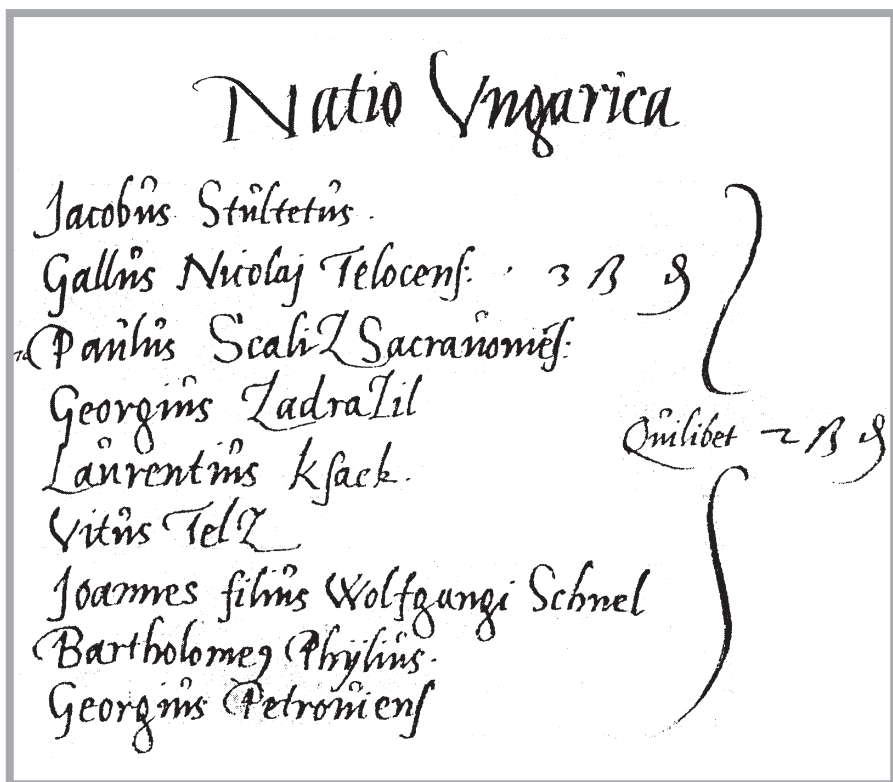 Natio Vngarica
Jacobus Stultetus.
Gallus Nicolaj Telocens: . 3 ß ₰
Paulus ScaliZ Sacrauomēs:
Georgius ZadraZil
Quilibet 2 ß ₰
Laurentius Ksack.
Vitus TelZ
Joannes filius Wolfgangi Schnel
Bartholomeꝰ Phÿlius.
Georgius Petrouiens